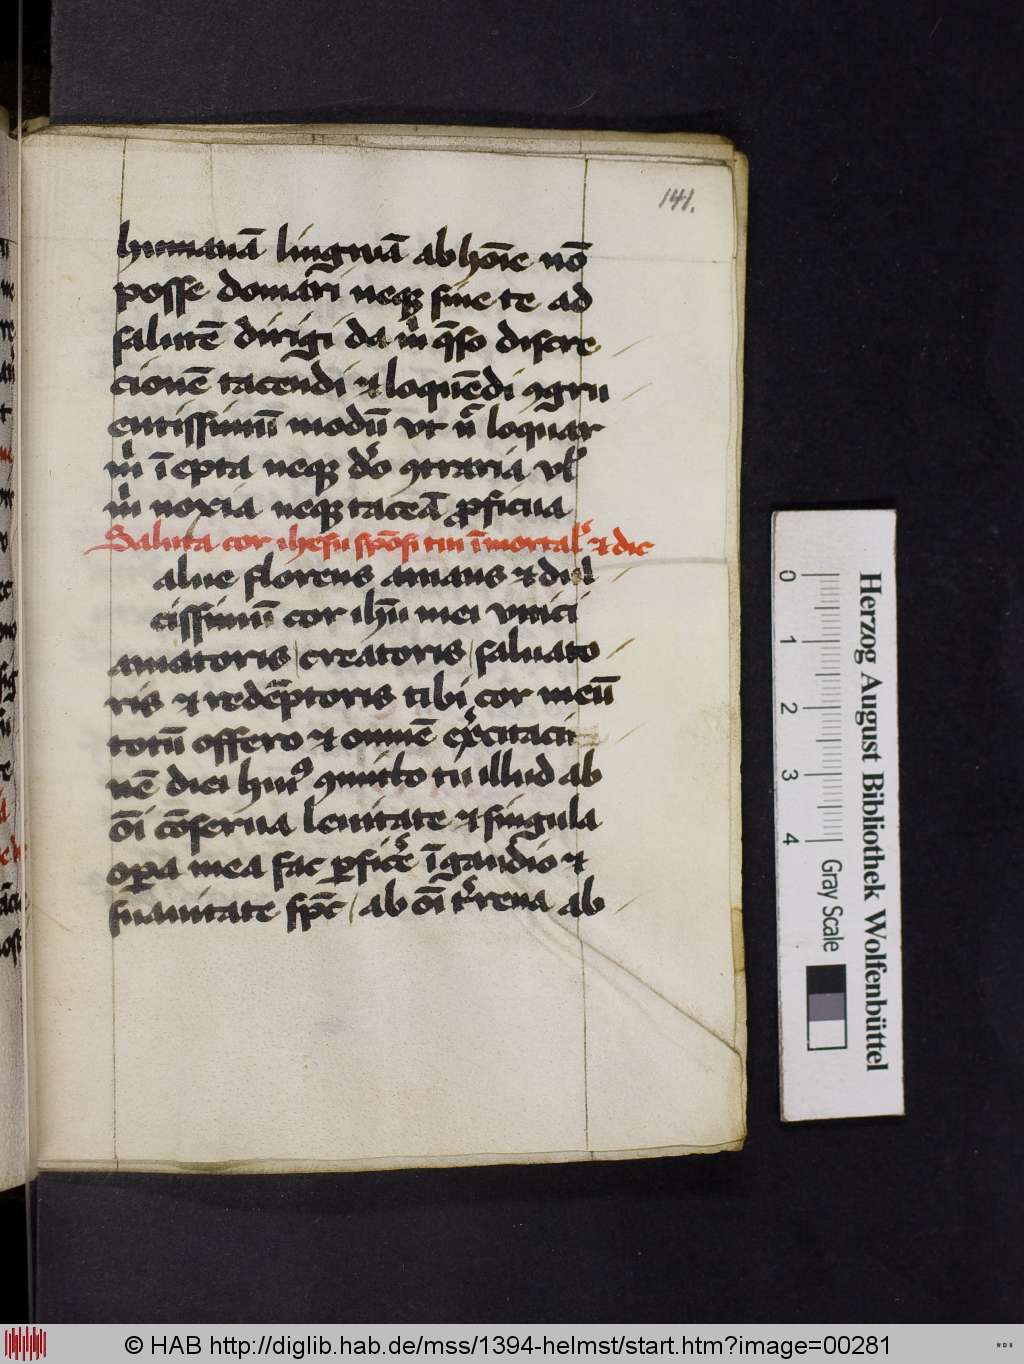 141.
humanā lingwā ab hoīe nō
posse domari neqꝫ sine te ad
salutē dirigi da m̍ q̄so discre
cionē tacendi ⁊ loquēdi ꝯgru
entissimū modū vt n̄ loquar
m̍ īepta neqꝫ d̍o ꝯtraria vl̕
m̍ noxia neqꝫ taceā ꝓficua
Saluta cor ihesu spōsi tui īmortal̕ ⁊ dic
alue florens amans ⁊ dul
cissimū cor ihū mei vnici
amatoris creatoris saluato
ris ⁊ redēptoris tibi cor meū
totū offero ⁊ omnē ex̍citacio
nē diei huiꝰ ꝯmitto tu illud ab
oī cōserua leuitate ⁊ singula
oꝑa mea fac ꝑfic̍e ī gaudio ⁊
suauitate sp̄c ab oī t̍rena ab
Herzog August Bibliothek Wolfenbüttel
0 1 2 3 4 Gray Scale
© HAB http://diglib.hab.de/mss/1394-helmst/start.htm?image=00281